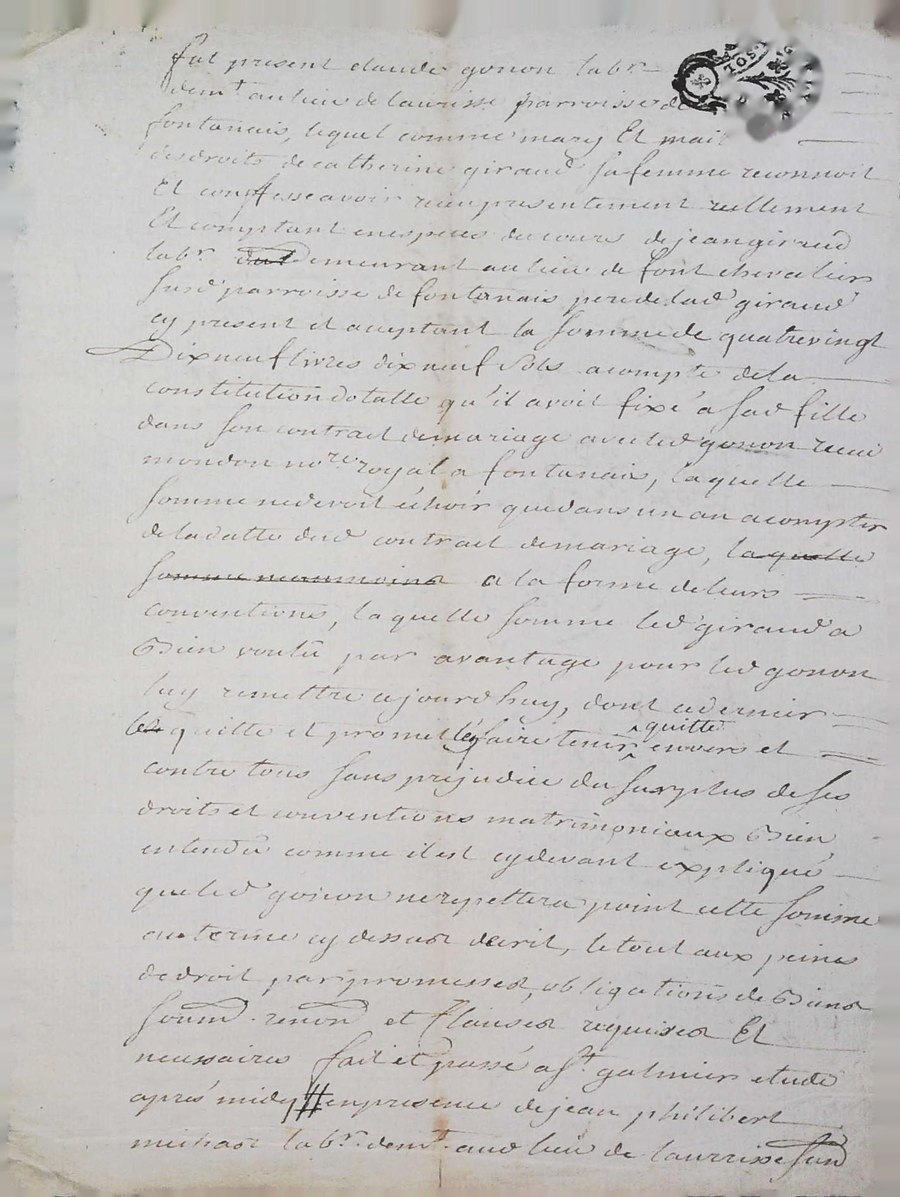 fut present claude gonon labr.
demt. au lieu de laurisse parroisse de
fontanais, lequel comme mary Et mait
des droits de catherine giraud sa femme reconnoit
Et conffesse avoir reçu presentement reellement
Et comptant en especes du cours de jean giraud
labr. dud demeurant au lieu de font chevaliers
susd parroisse de fontanais pere de lad giraud
cy present et aceptant la somme de quatrevingt
Dixneuf livres dixneuf sols acompte de la
constitution dotalle qu'il avoit fixé a sad fille
dans son contract de mariage avec led gonon recu
mondon nore royal a fontanais, laquelle
somme ne devoit échoir que dans un an a compter
de la datte dud contract de mariage, laquelle
somme neanmoins a la forme de leurs
conventions, laquelle somme led giraud a
Bien voulu par avantage pour led gonon
luy remettre ajourd huy, dont ce dernier
les quitte et promet le faire tenir quitte envers et
contre tous sans prejudice du surplus de ses
droits et conventions matrimoniaux Bien
entendu comme il est cy devant expliqué
que led gonon ne repettera point cette somme
au terme cy dessus decrit, le tout aux peines
de droit, par promesses, obligations de Biens
soumd. renond et Clauses requises Et
necessaires fait et passé a St. galmier etude
aprés midy # en presence de jean philibert
michas labr. demt. aud lieu de laurisse susd